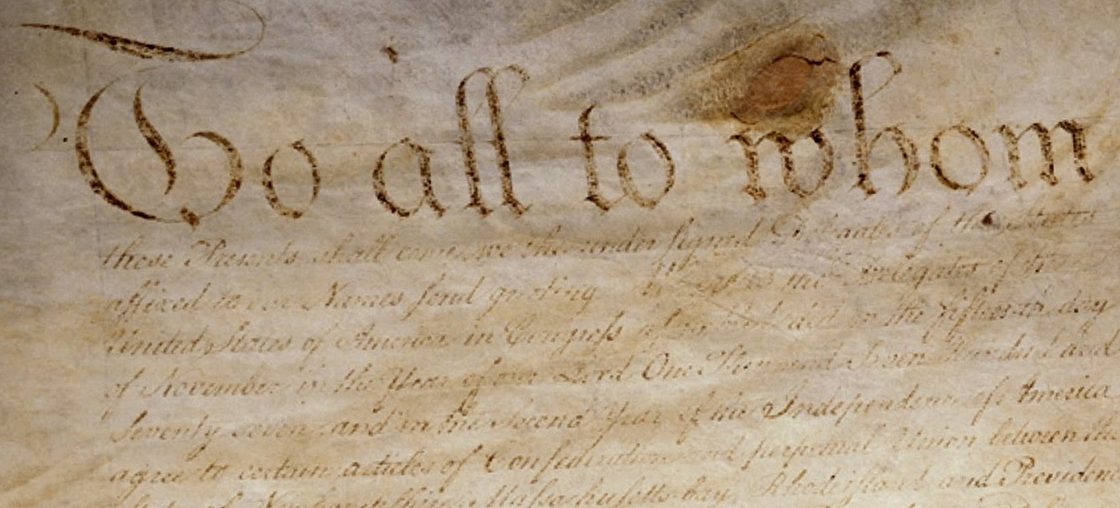 To all to whom
these Presents shall come, we the under signed Delegates of the States
affixed to our Names send greeting Whereas the Delegates of the
United States of America in Congress assembled did on the fifteenth day
of November in the Year of our Lord One Thousand Seven Hundred and
Seventy seven, and in the Second Year of the Independence of America
agree to certain articles of Confederation and perpetual Union between the
States of Newhampshire, Massachusetts-bay, Rhodeisland and Providence